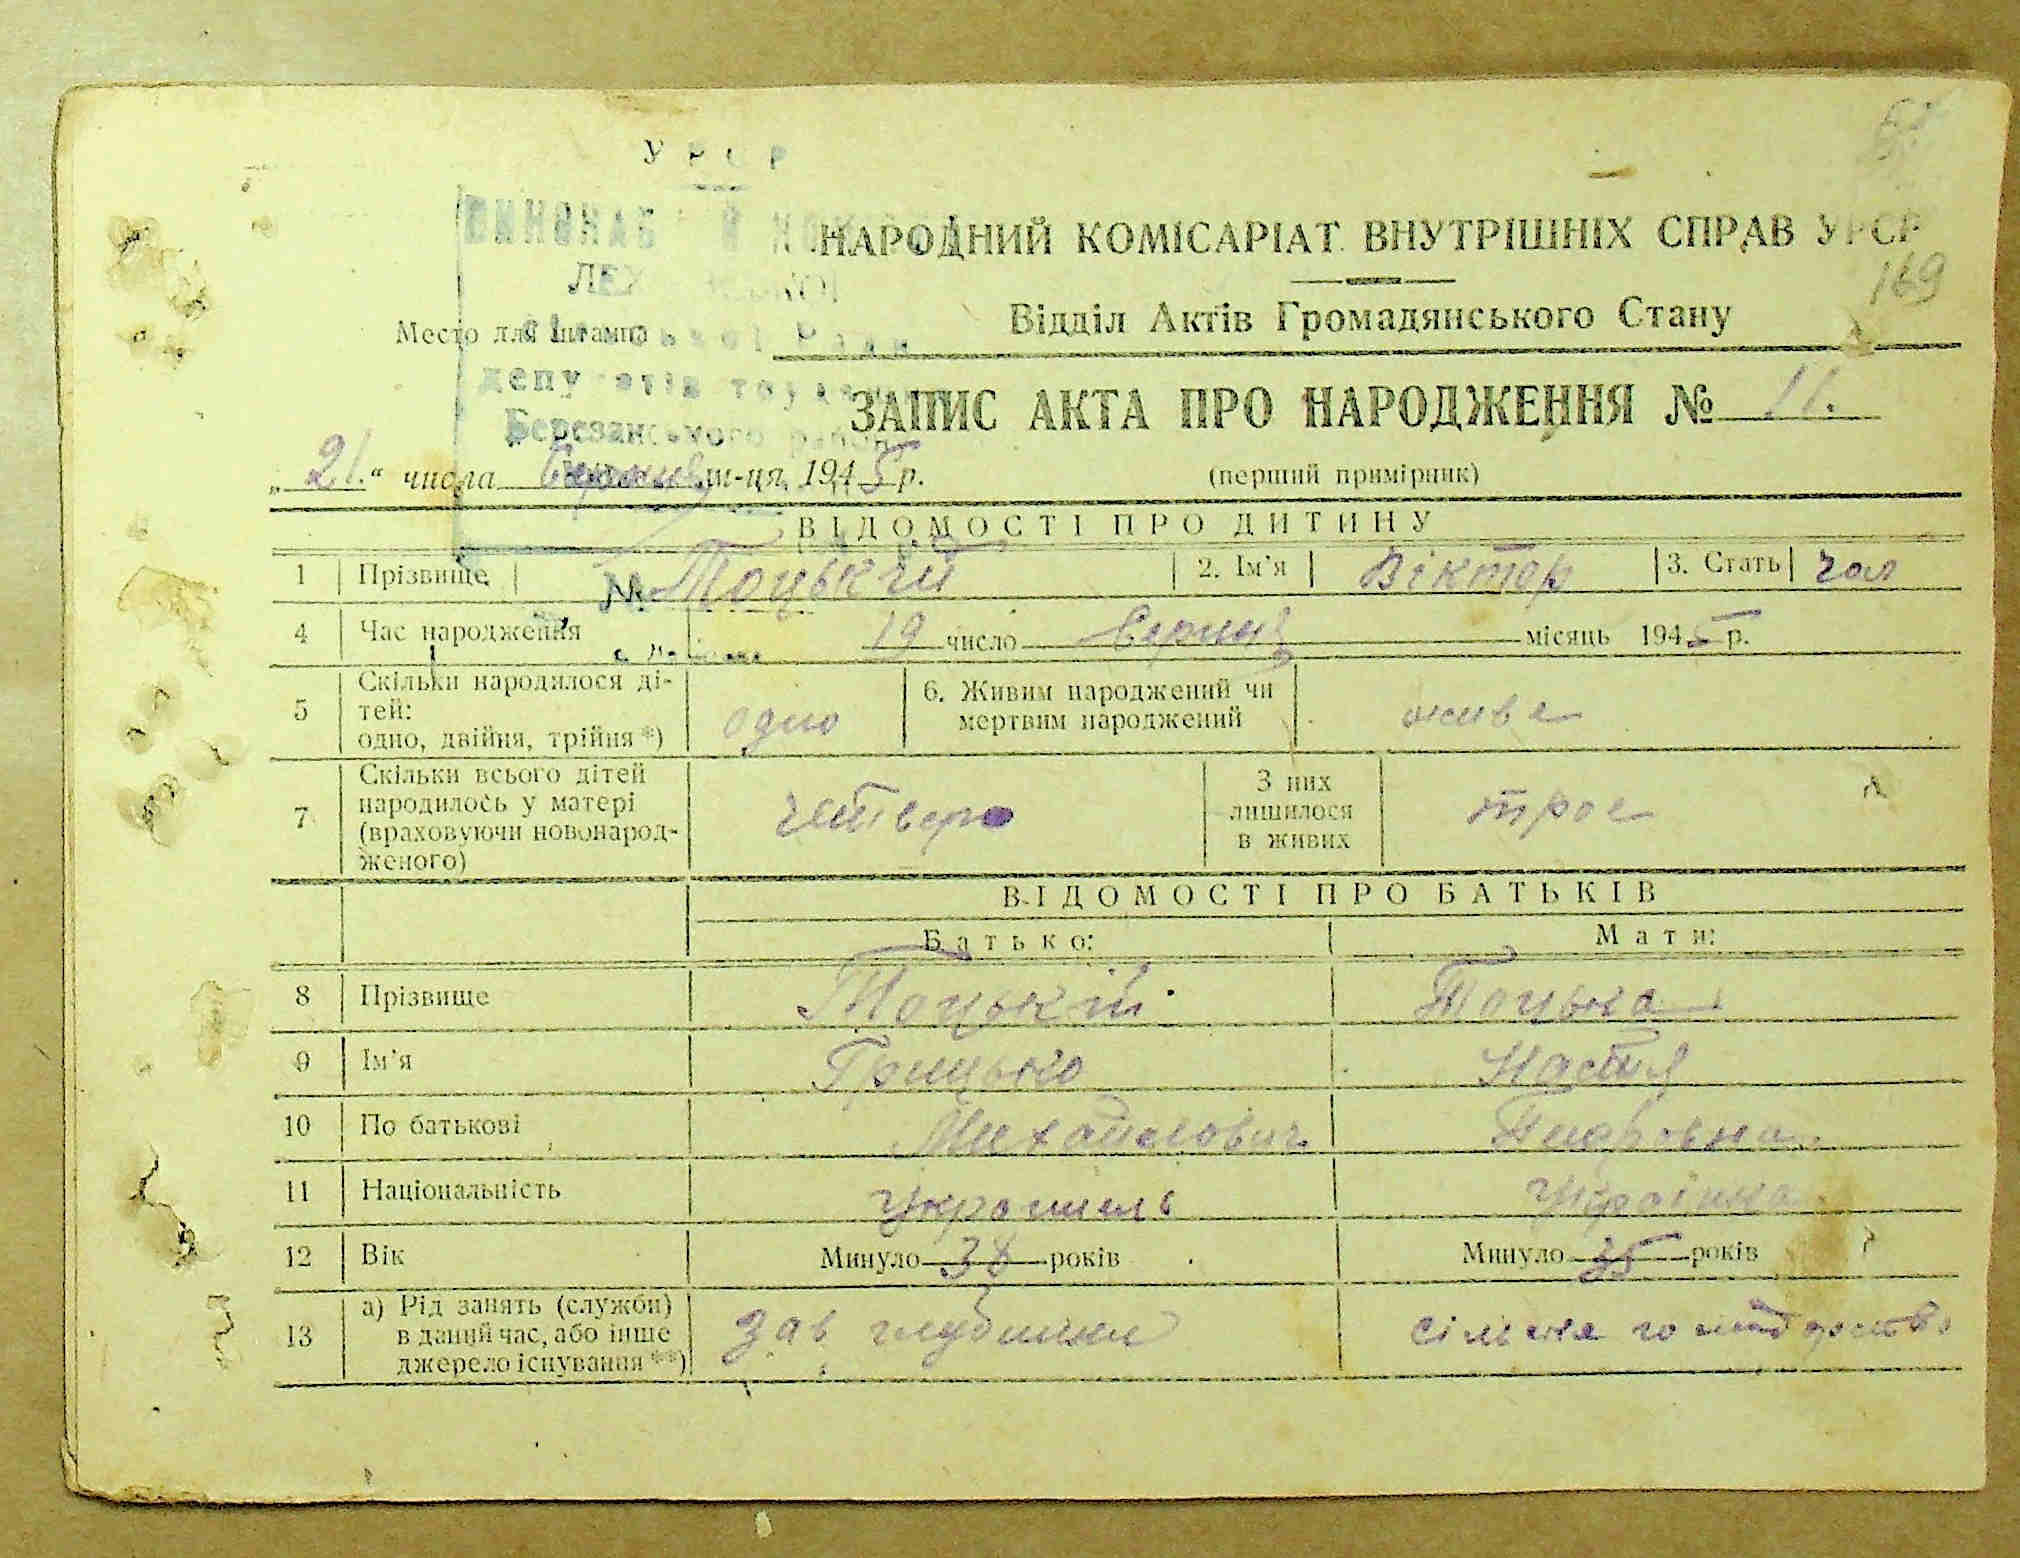 УРСР
НАРОДНИЙ КОМІСАРІАТ ВНУТРІШНІХ СПРАВ УРСР
169
Відділ Актів Громадянського Стану
Место для штампа
депутатів
Березанського
ЗАПИС АКТА ПРО НАРОДЖЕННЯ № 11.
„21.“ числа Серпня м-ця 1945 р. (перший примірник)
ВІДОМОСТІ ПРО ДИТИНУ
1 Прізвище Тоцький 2. Ім'я Віктор 3. Стать чол
№
4 Час народження 19 число Серпня місяць 1945 р.
5 Скільки народилося ді-
тей:
одно, двійня, трійня *) одно 6. Живим народжений чи
мертвим народжений живе
7 Скільки всього дітей
народилось у матері
(враховуючи новонарод-
женого) четверо З них
лишилося
в живих трое
ВІДОМОСТІ ПРО БАТЬКІВ
Батько: Мати:
8 Прізвище Тоцький Тоцька
9 Ім'я Грицько Настя
10 По батькові Михайлович
11 Національність українець українка
12 Вік Минуло 38 років Минуло 35 років
13 а) Рід занять (служби)
в даний час, або інше
джерело існування **) зав